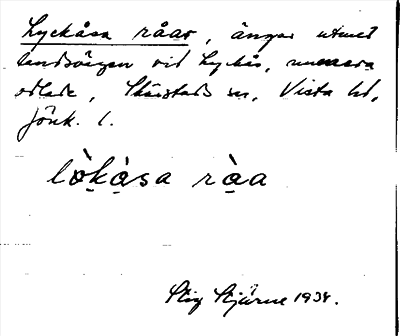 Lyckåsa råar, ängar utmed
landsvägen vid Lyckås, numera
odlade, Skärstads sn, Vista hd,
Jönk. l.
lò̤kà̤sa rà̤a
Stig Stjärne 1934.